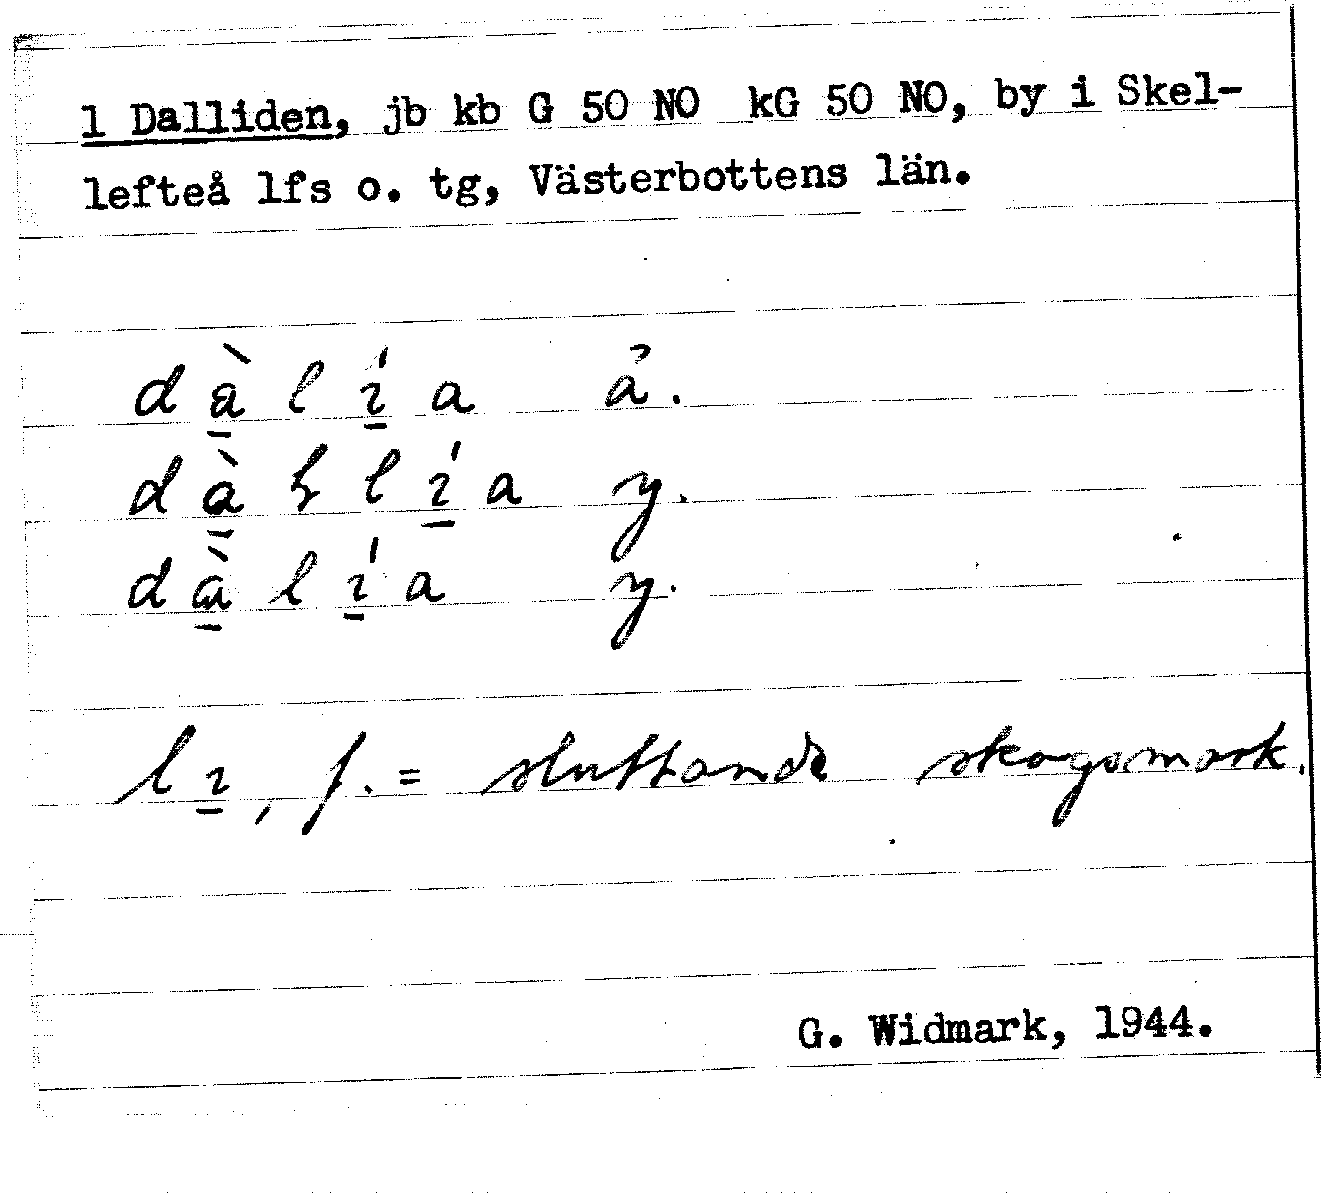 1 Dalliden, jb kb G 50 NO kG 50 NO, by i Skel-
lefteå lfs o. tg, Västerbottens län.
dà̱lı̱́a å.
dà̱ɫlı̱́a y.
dà̱lı̱́a y.
lı̱, f. = sluttande skogsmark.
G. Widmark, 1944.